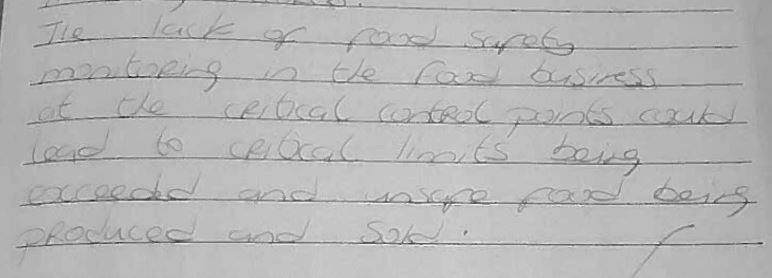 The lack of food safety
monitoring in the food business
at the critical control points could
lead to critical limits being
exceeded and unsafe food being
produced and sold.